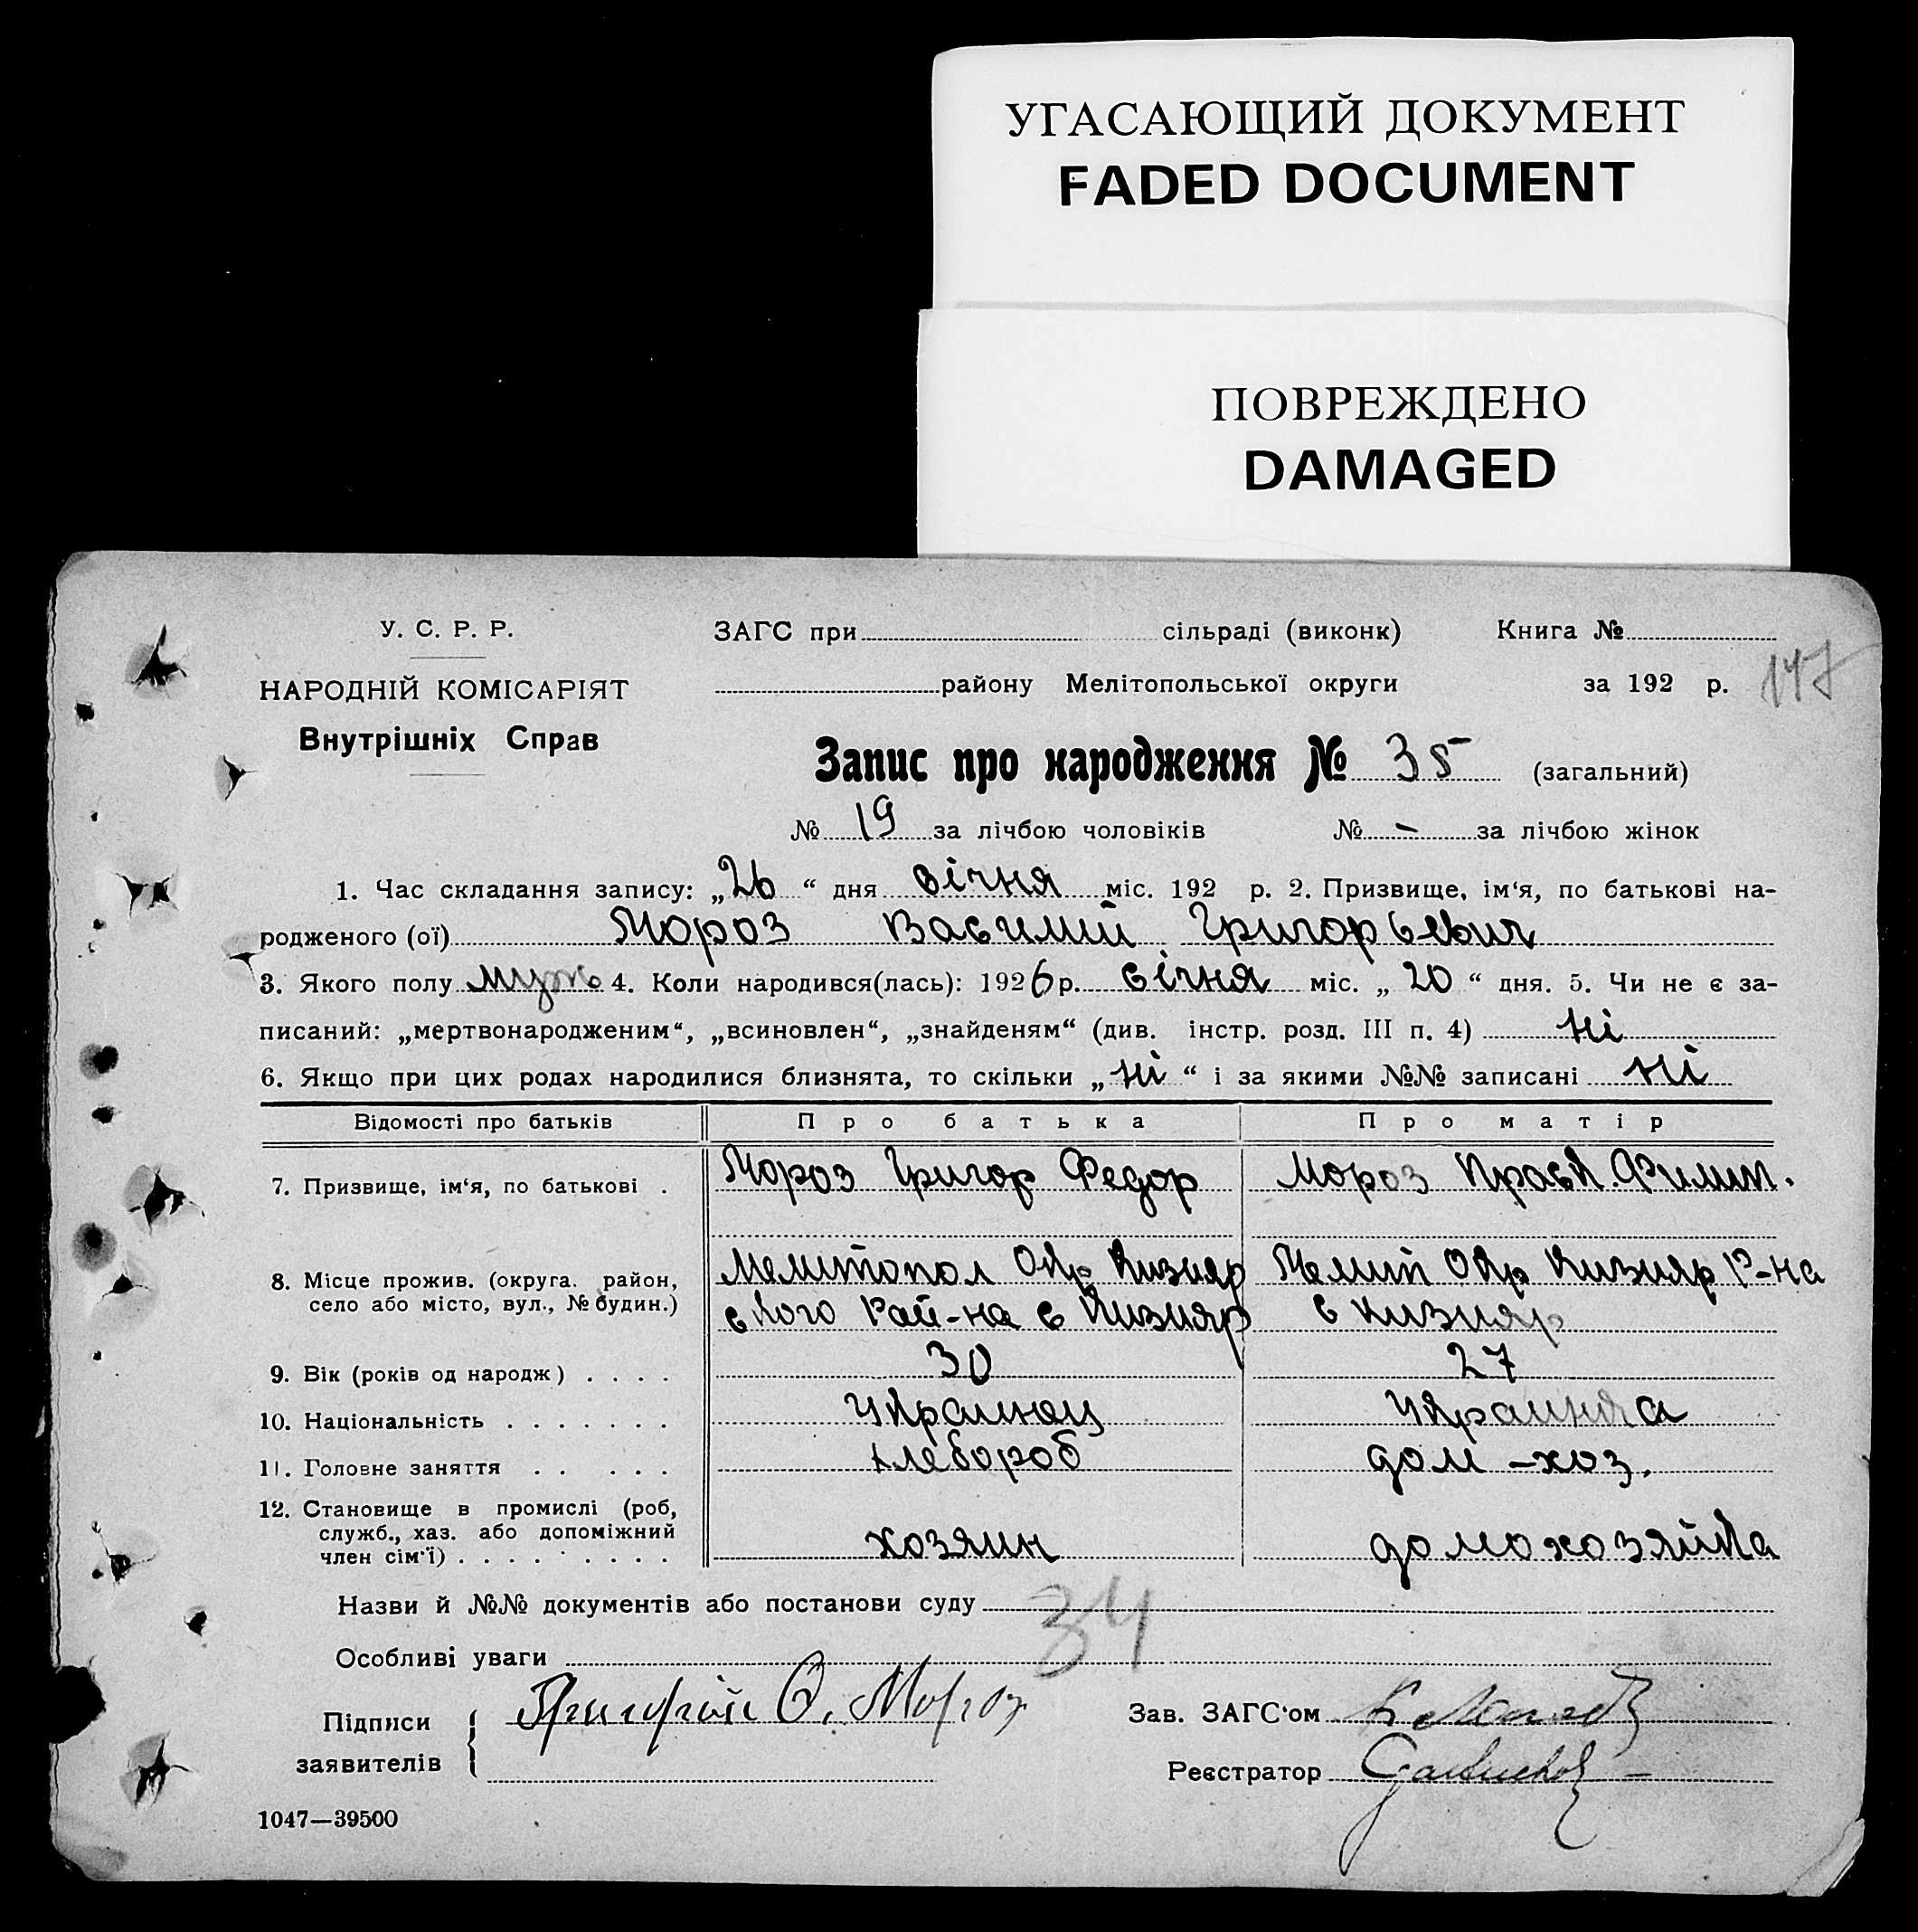 УГАСАЮЩИЙ ДОКУМЕНТ
FADED DOCUMENT
ПОВРЕЖДЕНО
DAMAGED
У. С. Р. Р.
НАРОДНІЙ КОМІСАРІЯТ
Внутрішніх Справ
ЗАГС при сільраді (виконк) Книга №
району Мелітопольської округи за 192 р. 147
Запис про народження № 35 (загальний)
№ 19 за лічбою чоловіків № - за лічбою жінок
1. Час складання запису: „26“ дня січня міс. 192 р. 2. Призвище, ім‘я, по батькові на-
родженого (ої) Мороз Василий Григорьевич
3. Якого полу муж 4. Коли народився(лась): 1926 р. січня міс. „20“ дня. 5. Чи не є за-
писаний: „мертвонародженим“, „всиновлен“, „знайденям“ (див. інстр. розд. III п. 4) ні
6. Якщо при цих родах народилися близнята, то скільки „ні“ і за якими №№ записані ні
Відомості про батьків Про батька Про матір
7. Призвище, ім‘я, по батькові . Мороз Григор Федор Мороз Праск. Филип.
8. Місце прожив. (округа. район, Мелитопол Окр Кизияр Мелит Окр Кизияр Р-на
село або місто, вул., № будин.) ского Рай-на с Кизияр с Кизияр
9. Вік (років од народж) . . . . 30 27
10. Національність . . . . . . . Украинец Украинка
11. Головне заняття . . . . . Хлебороб дом-хоз.
12. Становище в промислі (роб,
служб., хаз. або допоміжний
член сім‘ї) . . . . . . . . . хозяин домохозяйка
Назви й №№ документів або постанови суду
34
Особливі уваги
Підписи заявителів Григорій Ф. Мороз
Зав. ЗАГС‘ом
Реєстратор
1047—39500